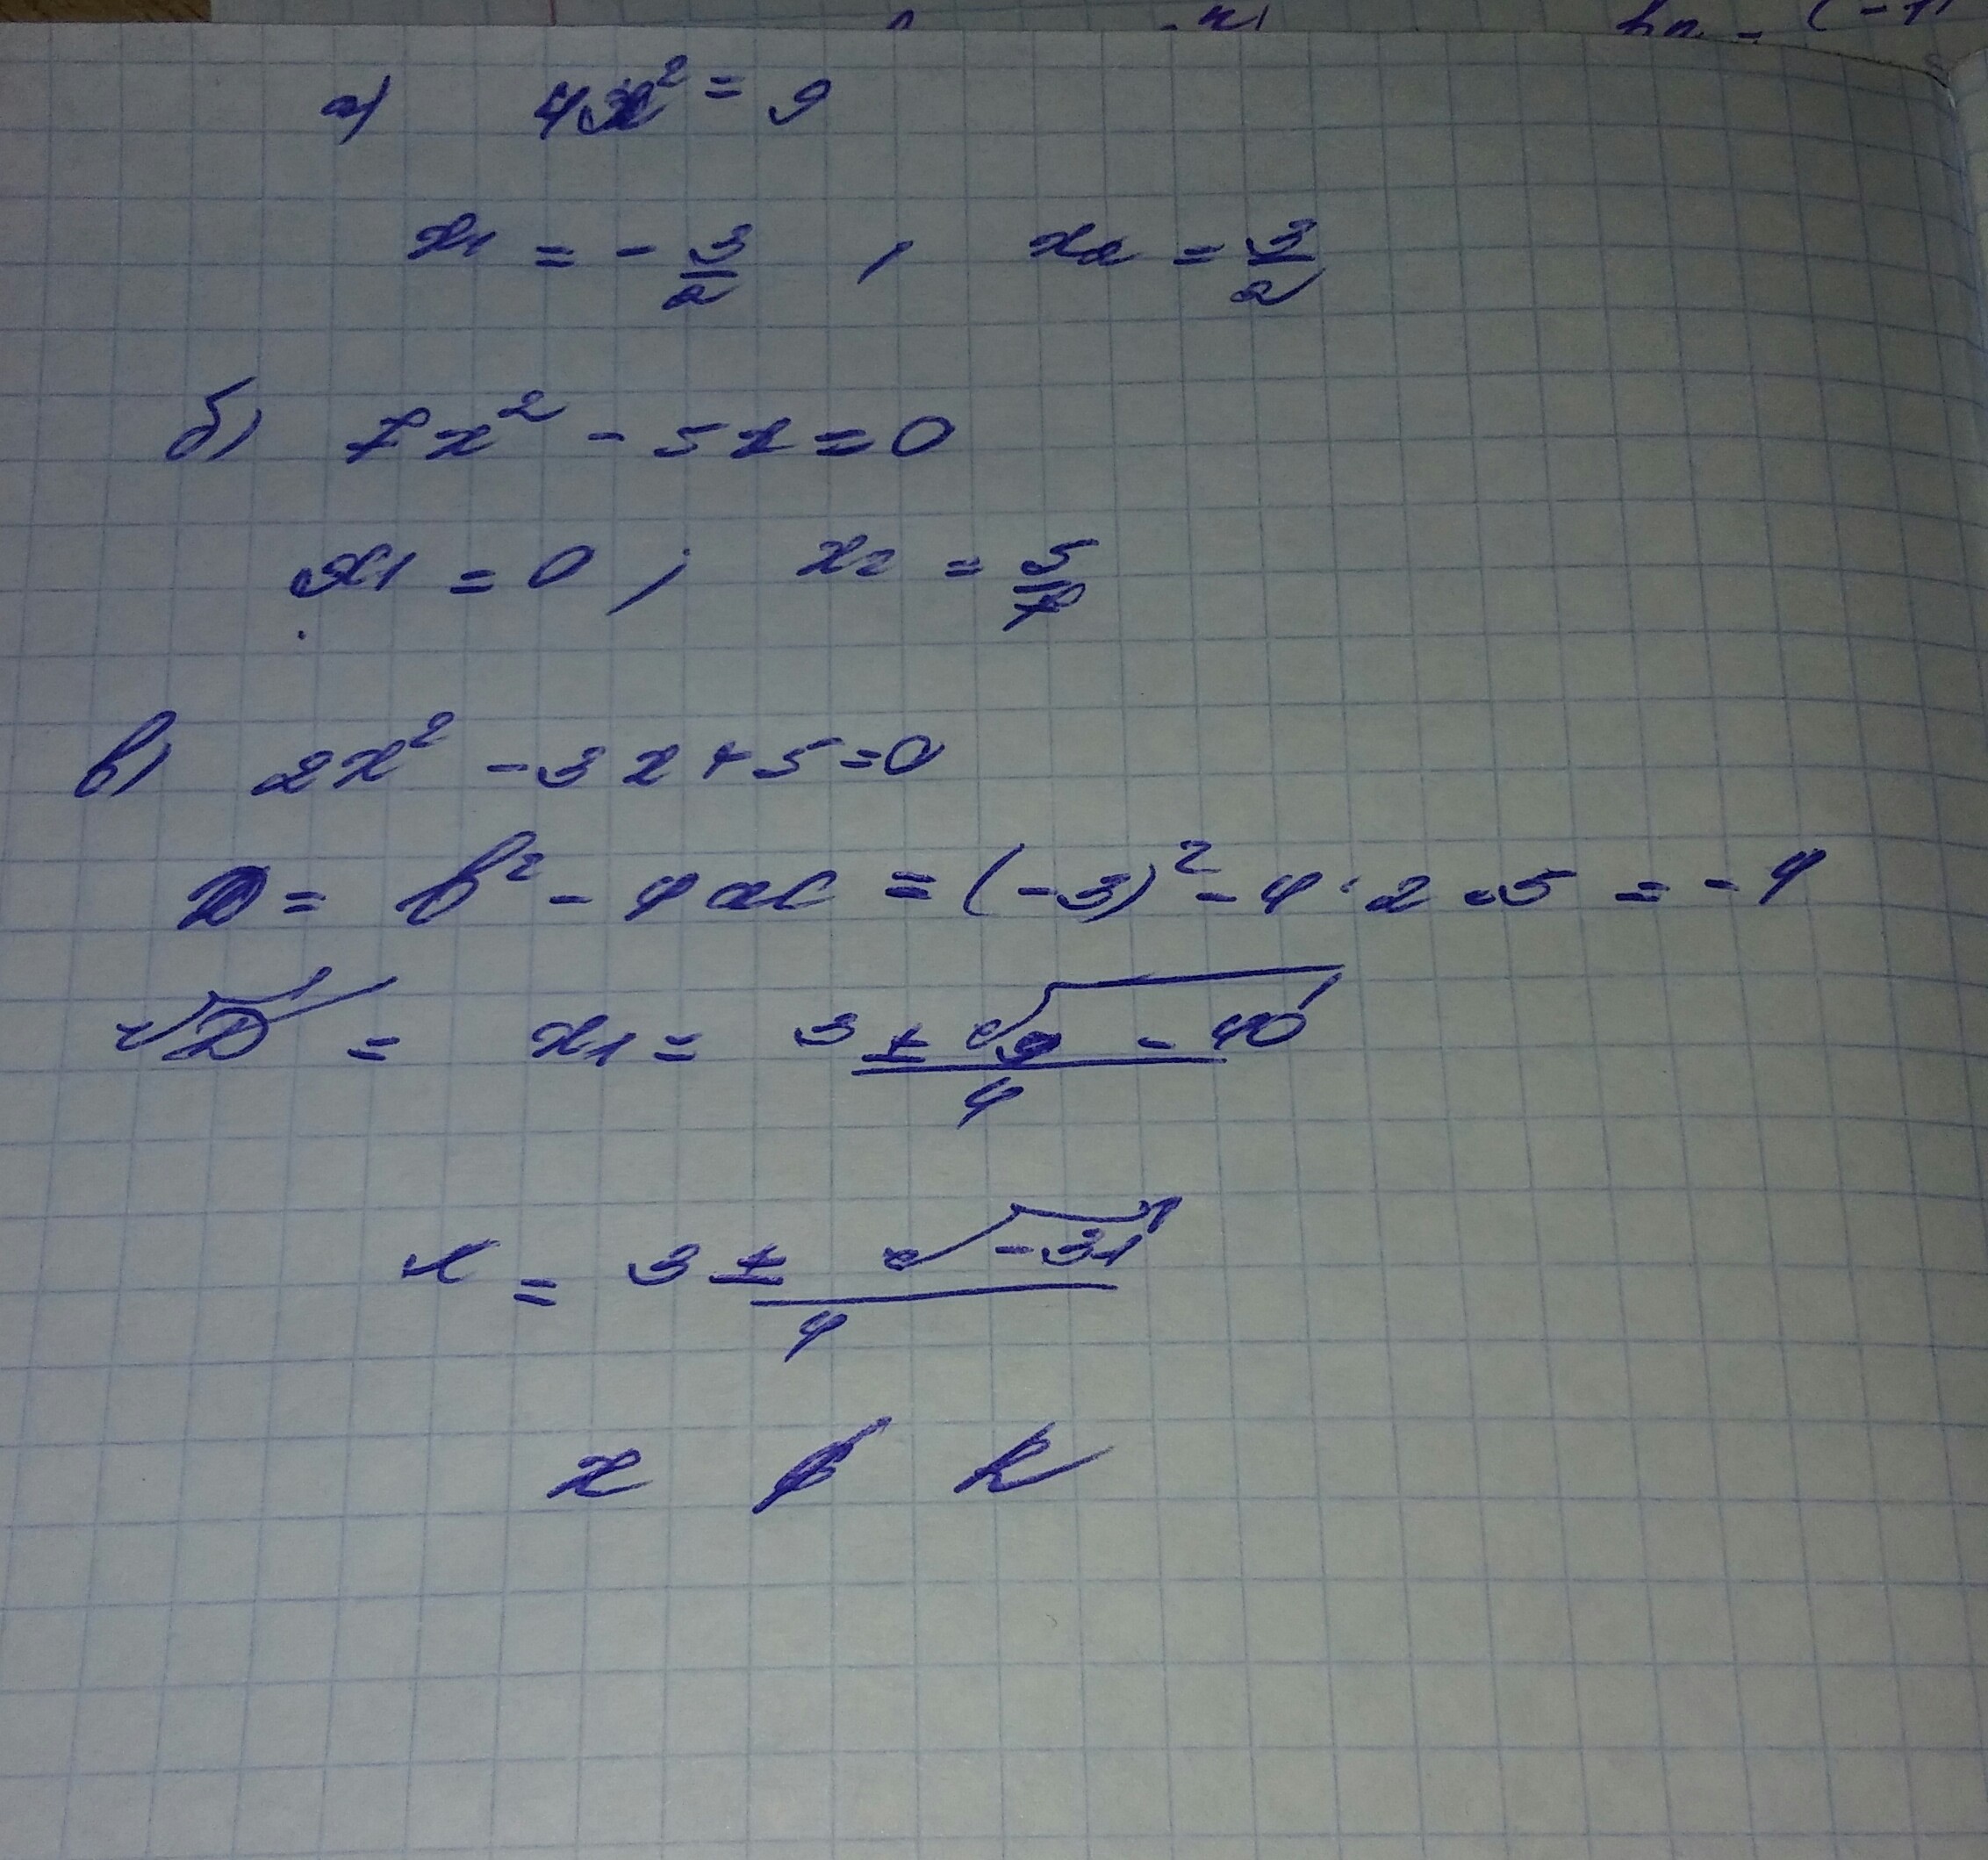 а) 4x² = 9
x₁ = - 3/2 , x₂ = 3/2
б) 7x² - 5x = 0
x₁ = 0 ; x₂ = 5/7
в) 2x² - 3x + 5 = 0
D = b² - 4ac = (-3)² - 4 · 2 · 5 = - 4
√D = x₁ = (3 ± √(9 - 40))/4
x = (3 ± √(-31))/4
x ∉ R